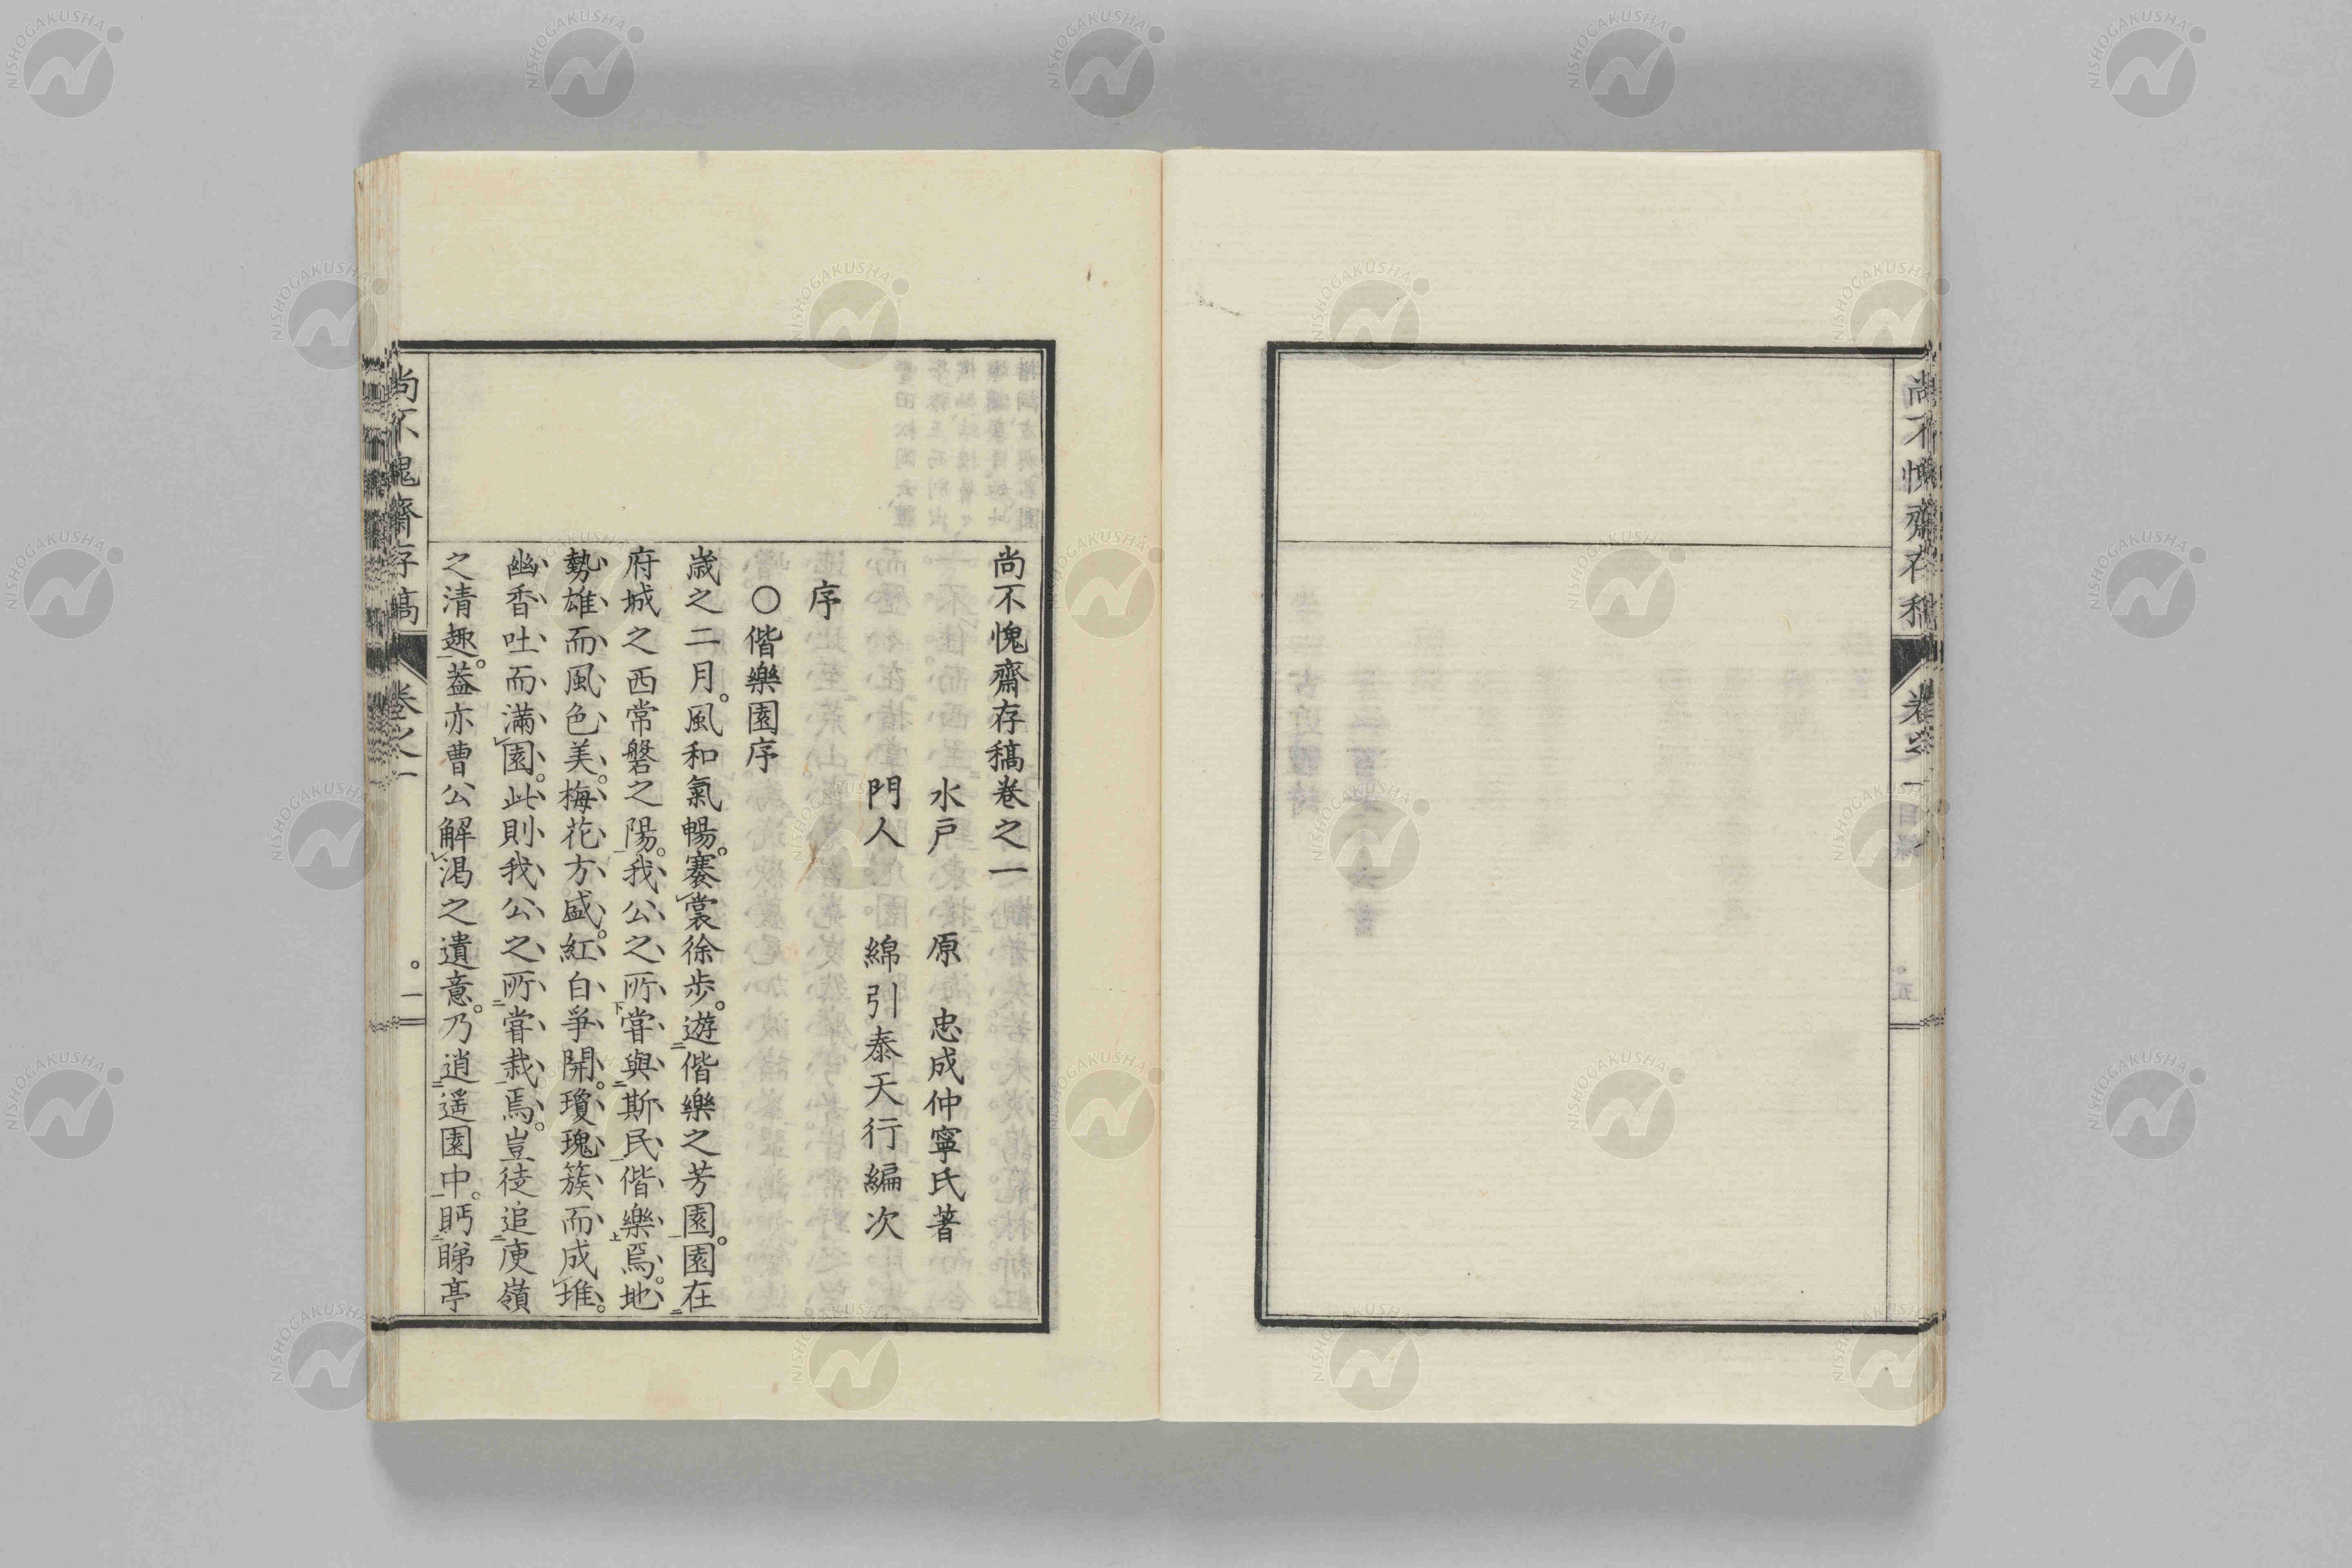 尚不愧齋存稿卷之一
水戶 原 忠成仲寧氏著
門人 綿引泰天行編次
序
〇偕樂園序
歲之二月。風和氣暢。褰裳徐步。遊偕樂之芳園。園在
府城之西常磐之陽。我公之所嘗與斯民偕樂焉。地
勢雄而風色美。梅花方盛。紅白爭開。瓊瑰簇而成堆。
幽香吐而滿園。此則我公之所嘗栽焉。豈徒追庾嶺
之清趣。蓋亦曹公解渴之遺意。乃逍遙園中。眄睇亭
尚不愧齋存稿 卷之一 一